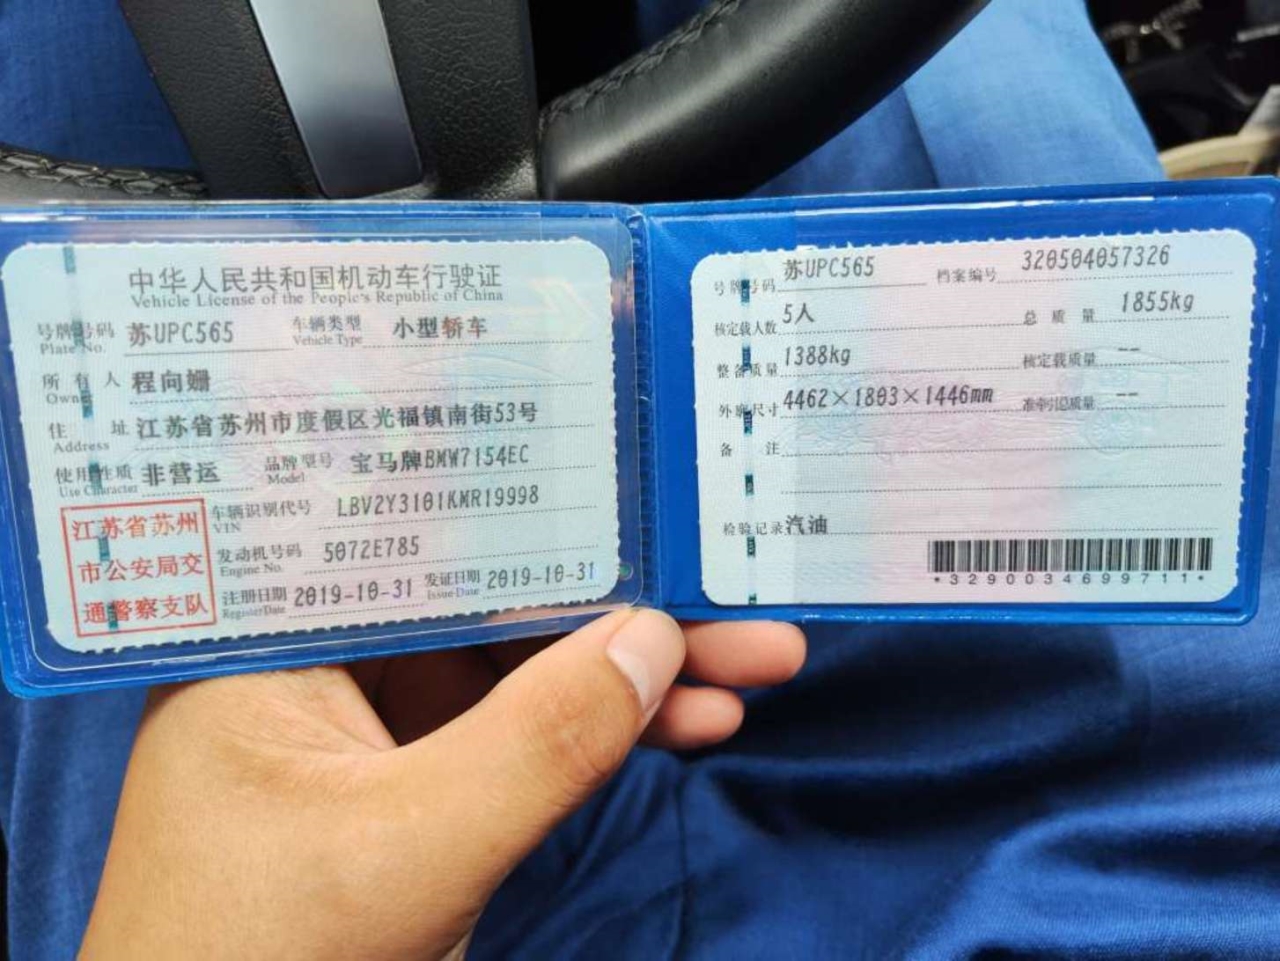 中华人民共和国机动车行驶证
Vehicle License of the People's Republic of China
号牌号码 苏UPC565 车辆类型 小型轿车
Plate No. Vehicle Type
所有人 程向姗
Owner
住址 江苏省苏州市度假区光福镇南街53号
Address
使用性质 非营运 品牌型号 宝马牌BMW7154EC
Use Character Model
江苏省苏州
市公安局交
通警察支队
车辆识别代号 LBV2Y3101KMR19998
VIN
发动机号码 5072E785
Engine No.
注册日期 2019-10-31 发证日期 2019-10-31
Register Date Issue Date
号牌号码 苏UPC565 档案编号 320504057326
核定载人数 5人 总质量 1855kg
整备质量 1388kg 核定载质量 --
外廓尺寸 4462×1803×1446mm 准牵引总质量 --
备注
检验记录 汽油
*3290034699711*